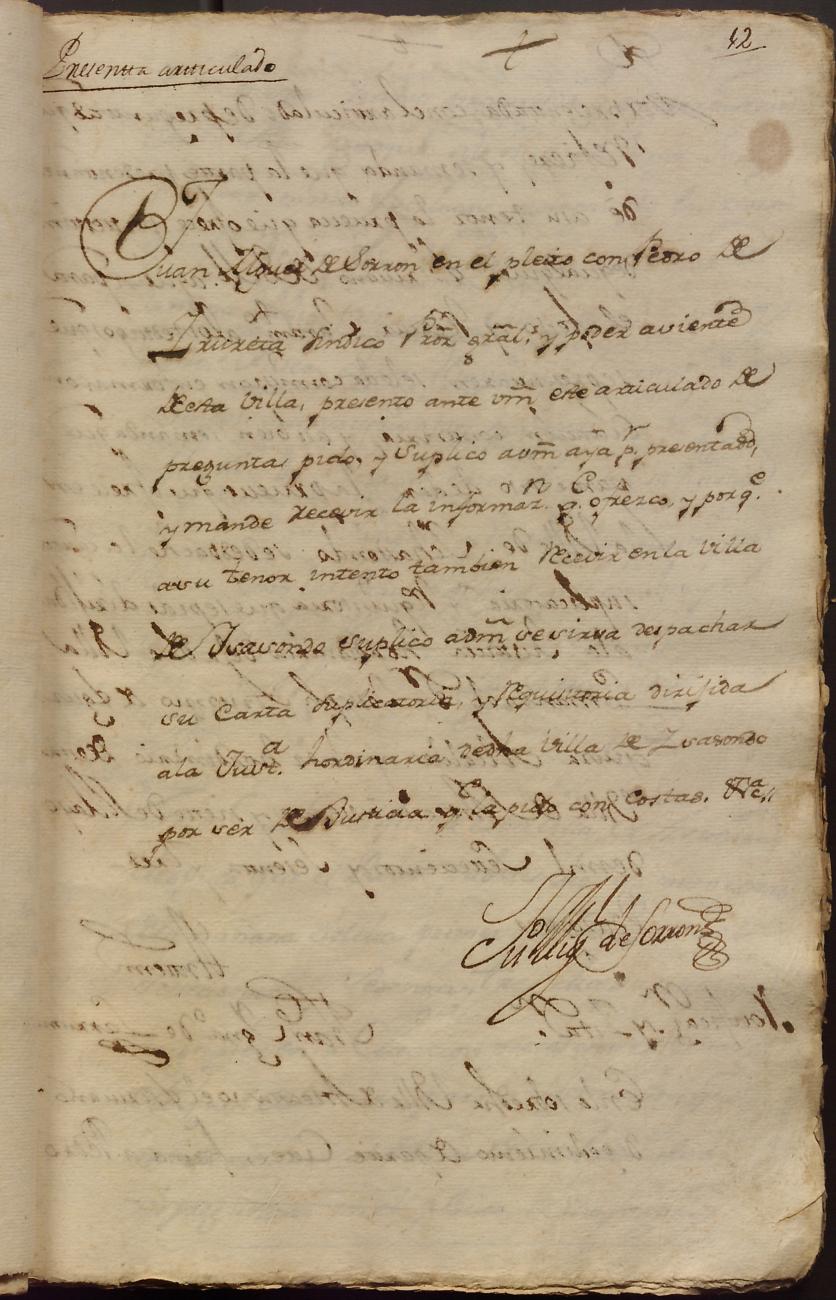 42
Presenta articulado
Juan Miguel de Sorron en el pleito con Pedro de
Zrureta sindico Pror gral. y poder aviente
de esta Villa, presento ante vm este articulado de
preguntas pido, y suplico avm aya pr. presentado,
y mande recevir la informazn. qe. ofrezco, y porqe.
asu tenor intento tambien recevir en la Villa
de Ysasondo suplico avm se sirva despachar
su Carta suplicatoria, y Requisitoria dirijida
ala Justa. hordinaria de dha Villa de Zsasondo
por ser de Justicia qe. la pido con Costas. &a.
Jn. Migl de Sorron